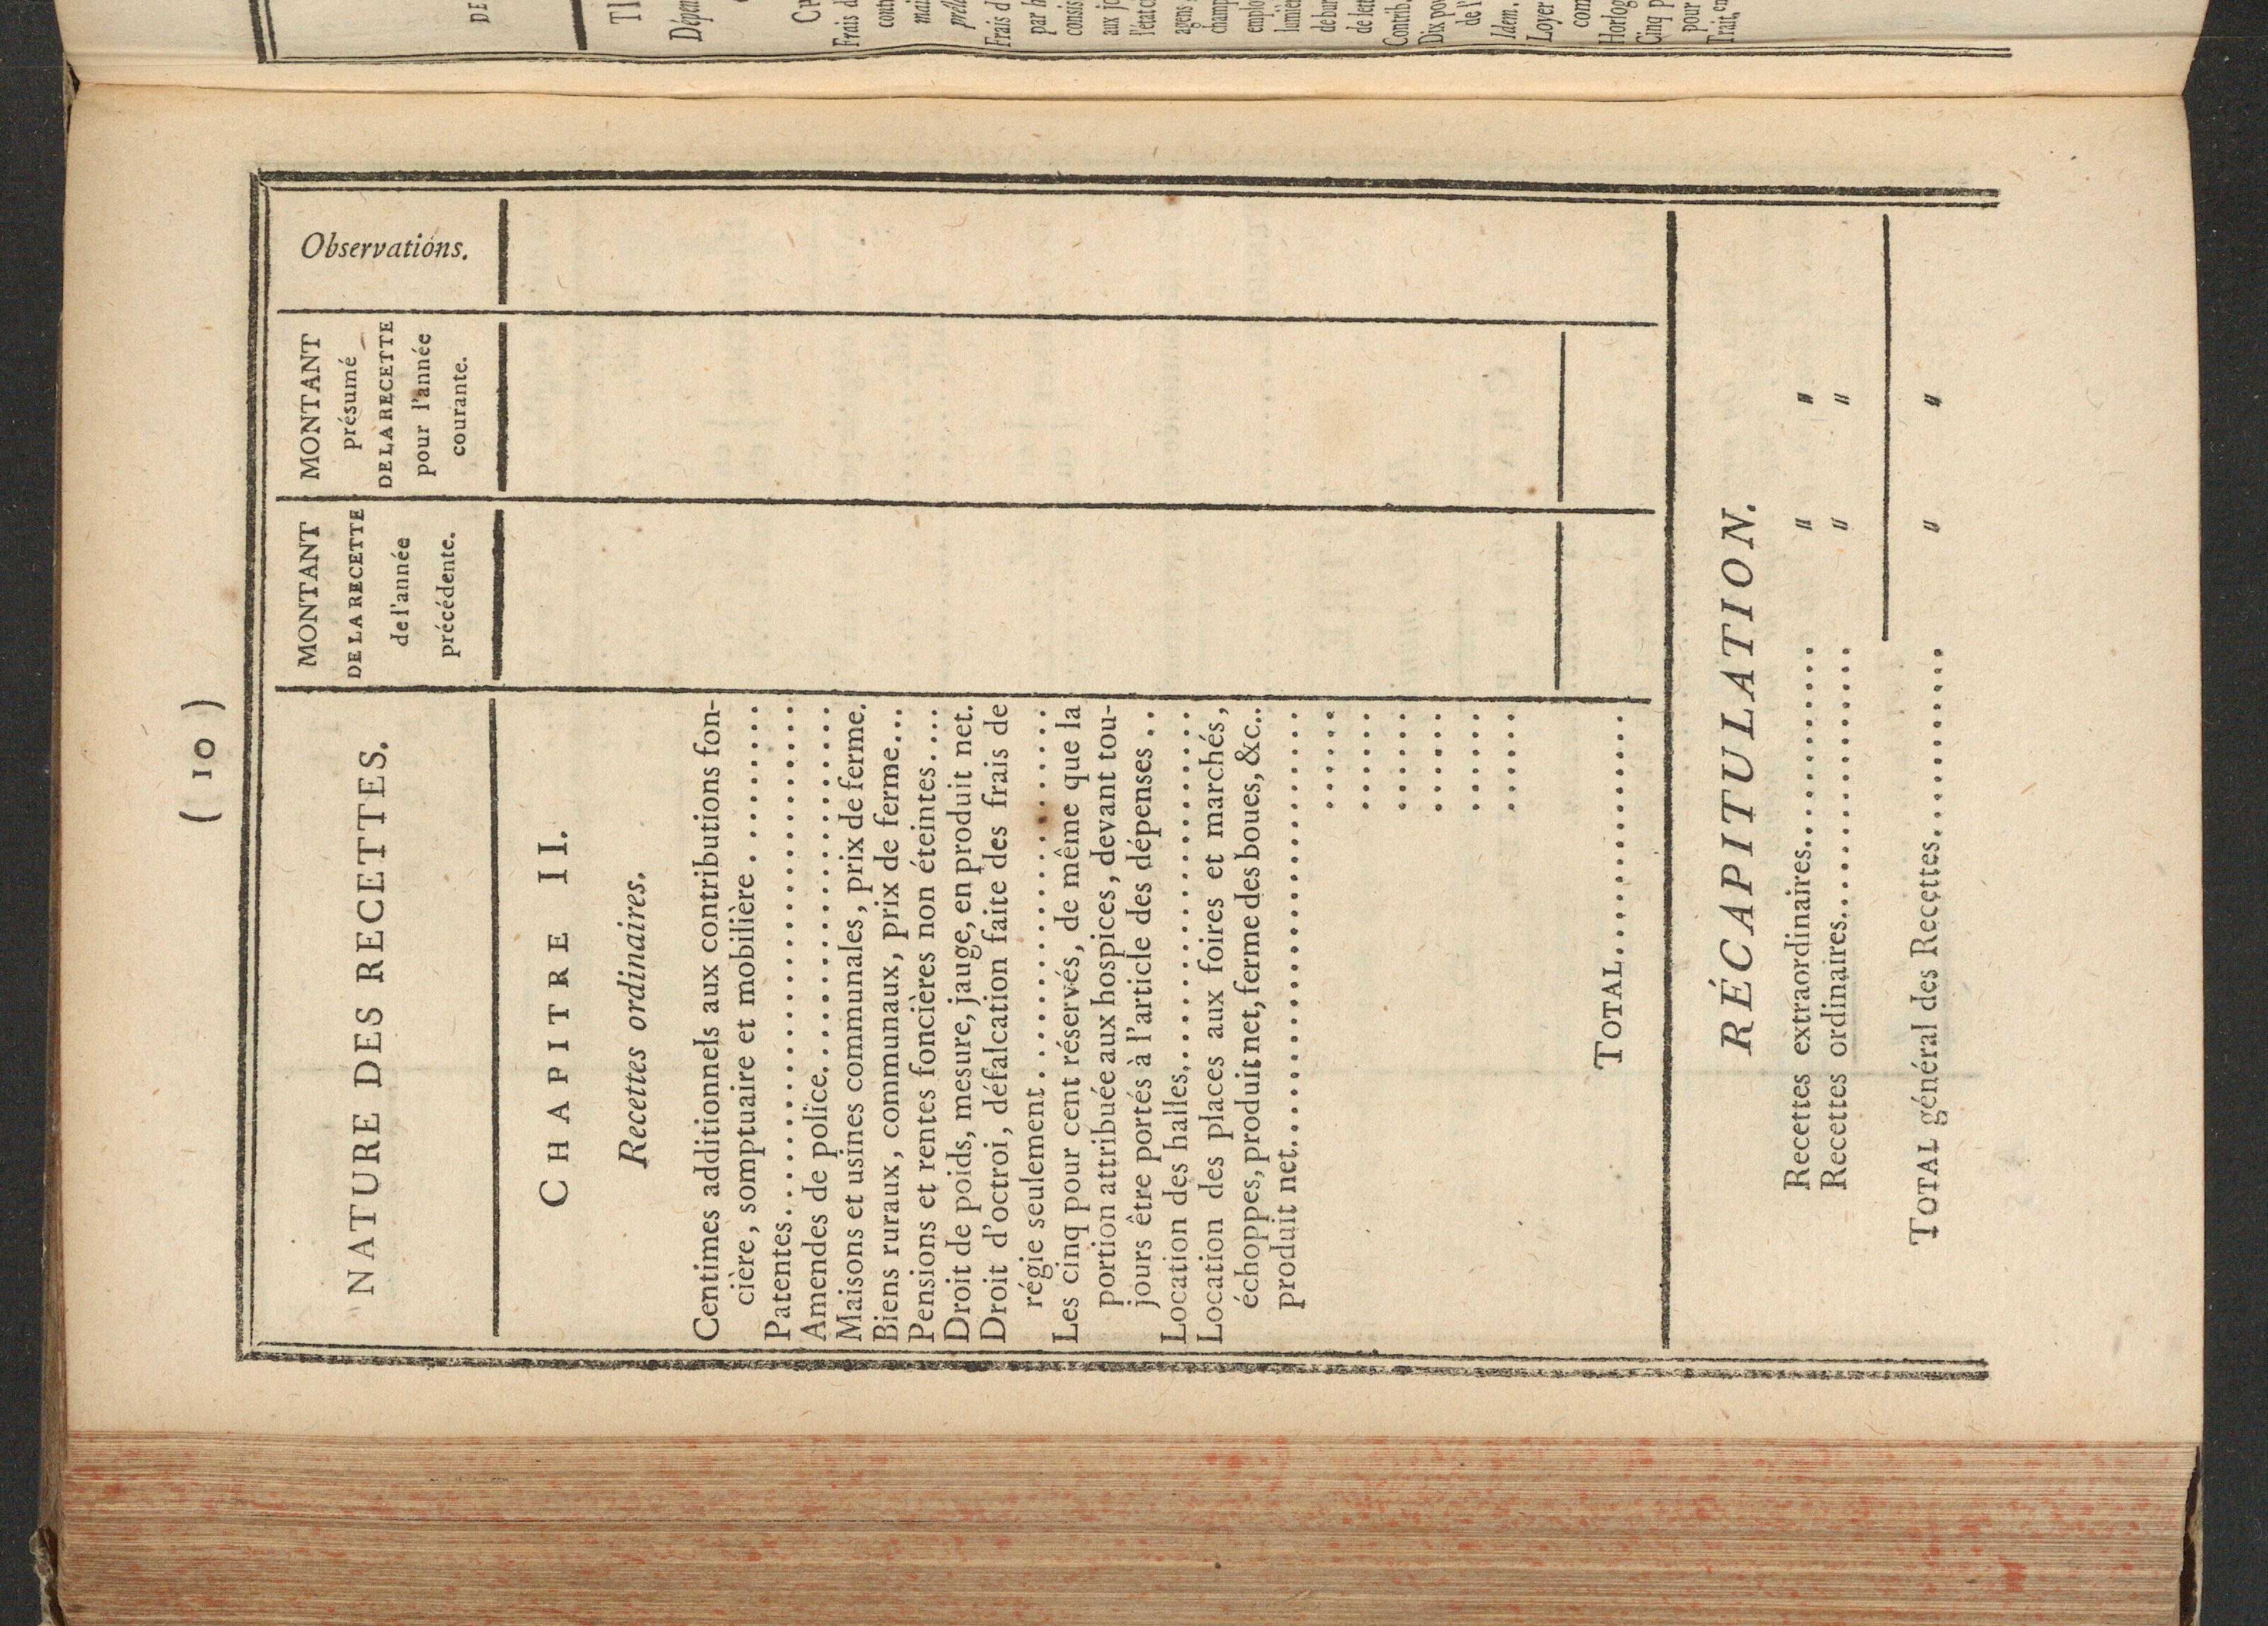 ( 10 )
NATURE DES RECETTES.
MONTANT
DE LA RECETTE
de l'année
précédente.
MONTANT
présumé
DE LA RECETTE
pour l'année
courante.
Observations.
CHAPITRE II.
Recettes ordinaires.
Centimes additionnels aux contributions fon-
cière, somptuaire et mobilière . . . . . . . . .
Patentes. . . . . . . . . . . . . . . . . . . . . . . . . . . . .
Amendes de police. . . . . . . . . . . . . . . . . . . . .
Maisons et usines communales, prix de ferme.
Biens ruraux, communaux, prix de ferme. . .
Pensions et rentes foncières non éteintes. . . .
Droit de poids, mesure, jauge, en produit net.
Droit d'octroi, défalcation faite des frais de
régie seulement . . . . . . . . . . . . . . . . . . . . .
Les cinq pour cent réservés, de même que la
portion attribuée aux hospices, devant tou-
jours être portés à l'article des dépenses . .
Location des halles. . . . . . . . . . . . . . . . . . . . .
Location des places aux foires et marchés,
échoppes, produit net, ferme des boues, &c..
produit net. . . . . . . . . . . . . . . . . . . . . . . . .
. . . . . .
. . . . . .
. . . . . .
. . . . . .
. . . . . .
. . . . . .
TOTAL. . . . . . . . . . . . . . .
RÉCAPITULATION.
Recettes extraordinaires. . . . . . . . . . . . . " "
Recettes ordinaires. . . . . . . . . . . . . . . . . " "
TOTAL général des Recettes. . . . . . . . . . . . " "
DE
TI
Dépen
Frais d
Frais d
par h
consis
aux jo
agens
champ
emplo
lumièr
de bur
de lett
Contrib.
Dix pou
de l'
Idem.
Loyer
com
Horlog
Cinq p
pour
Trait. en